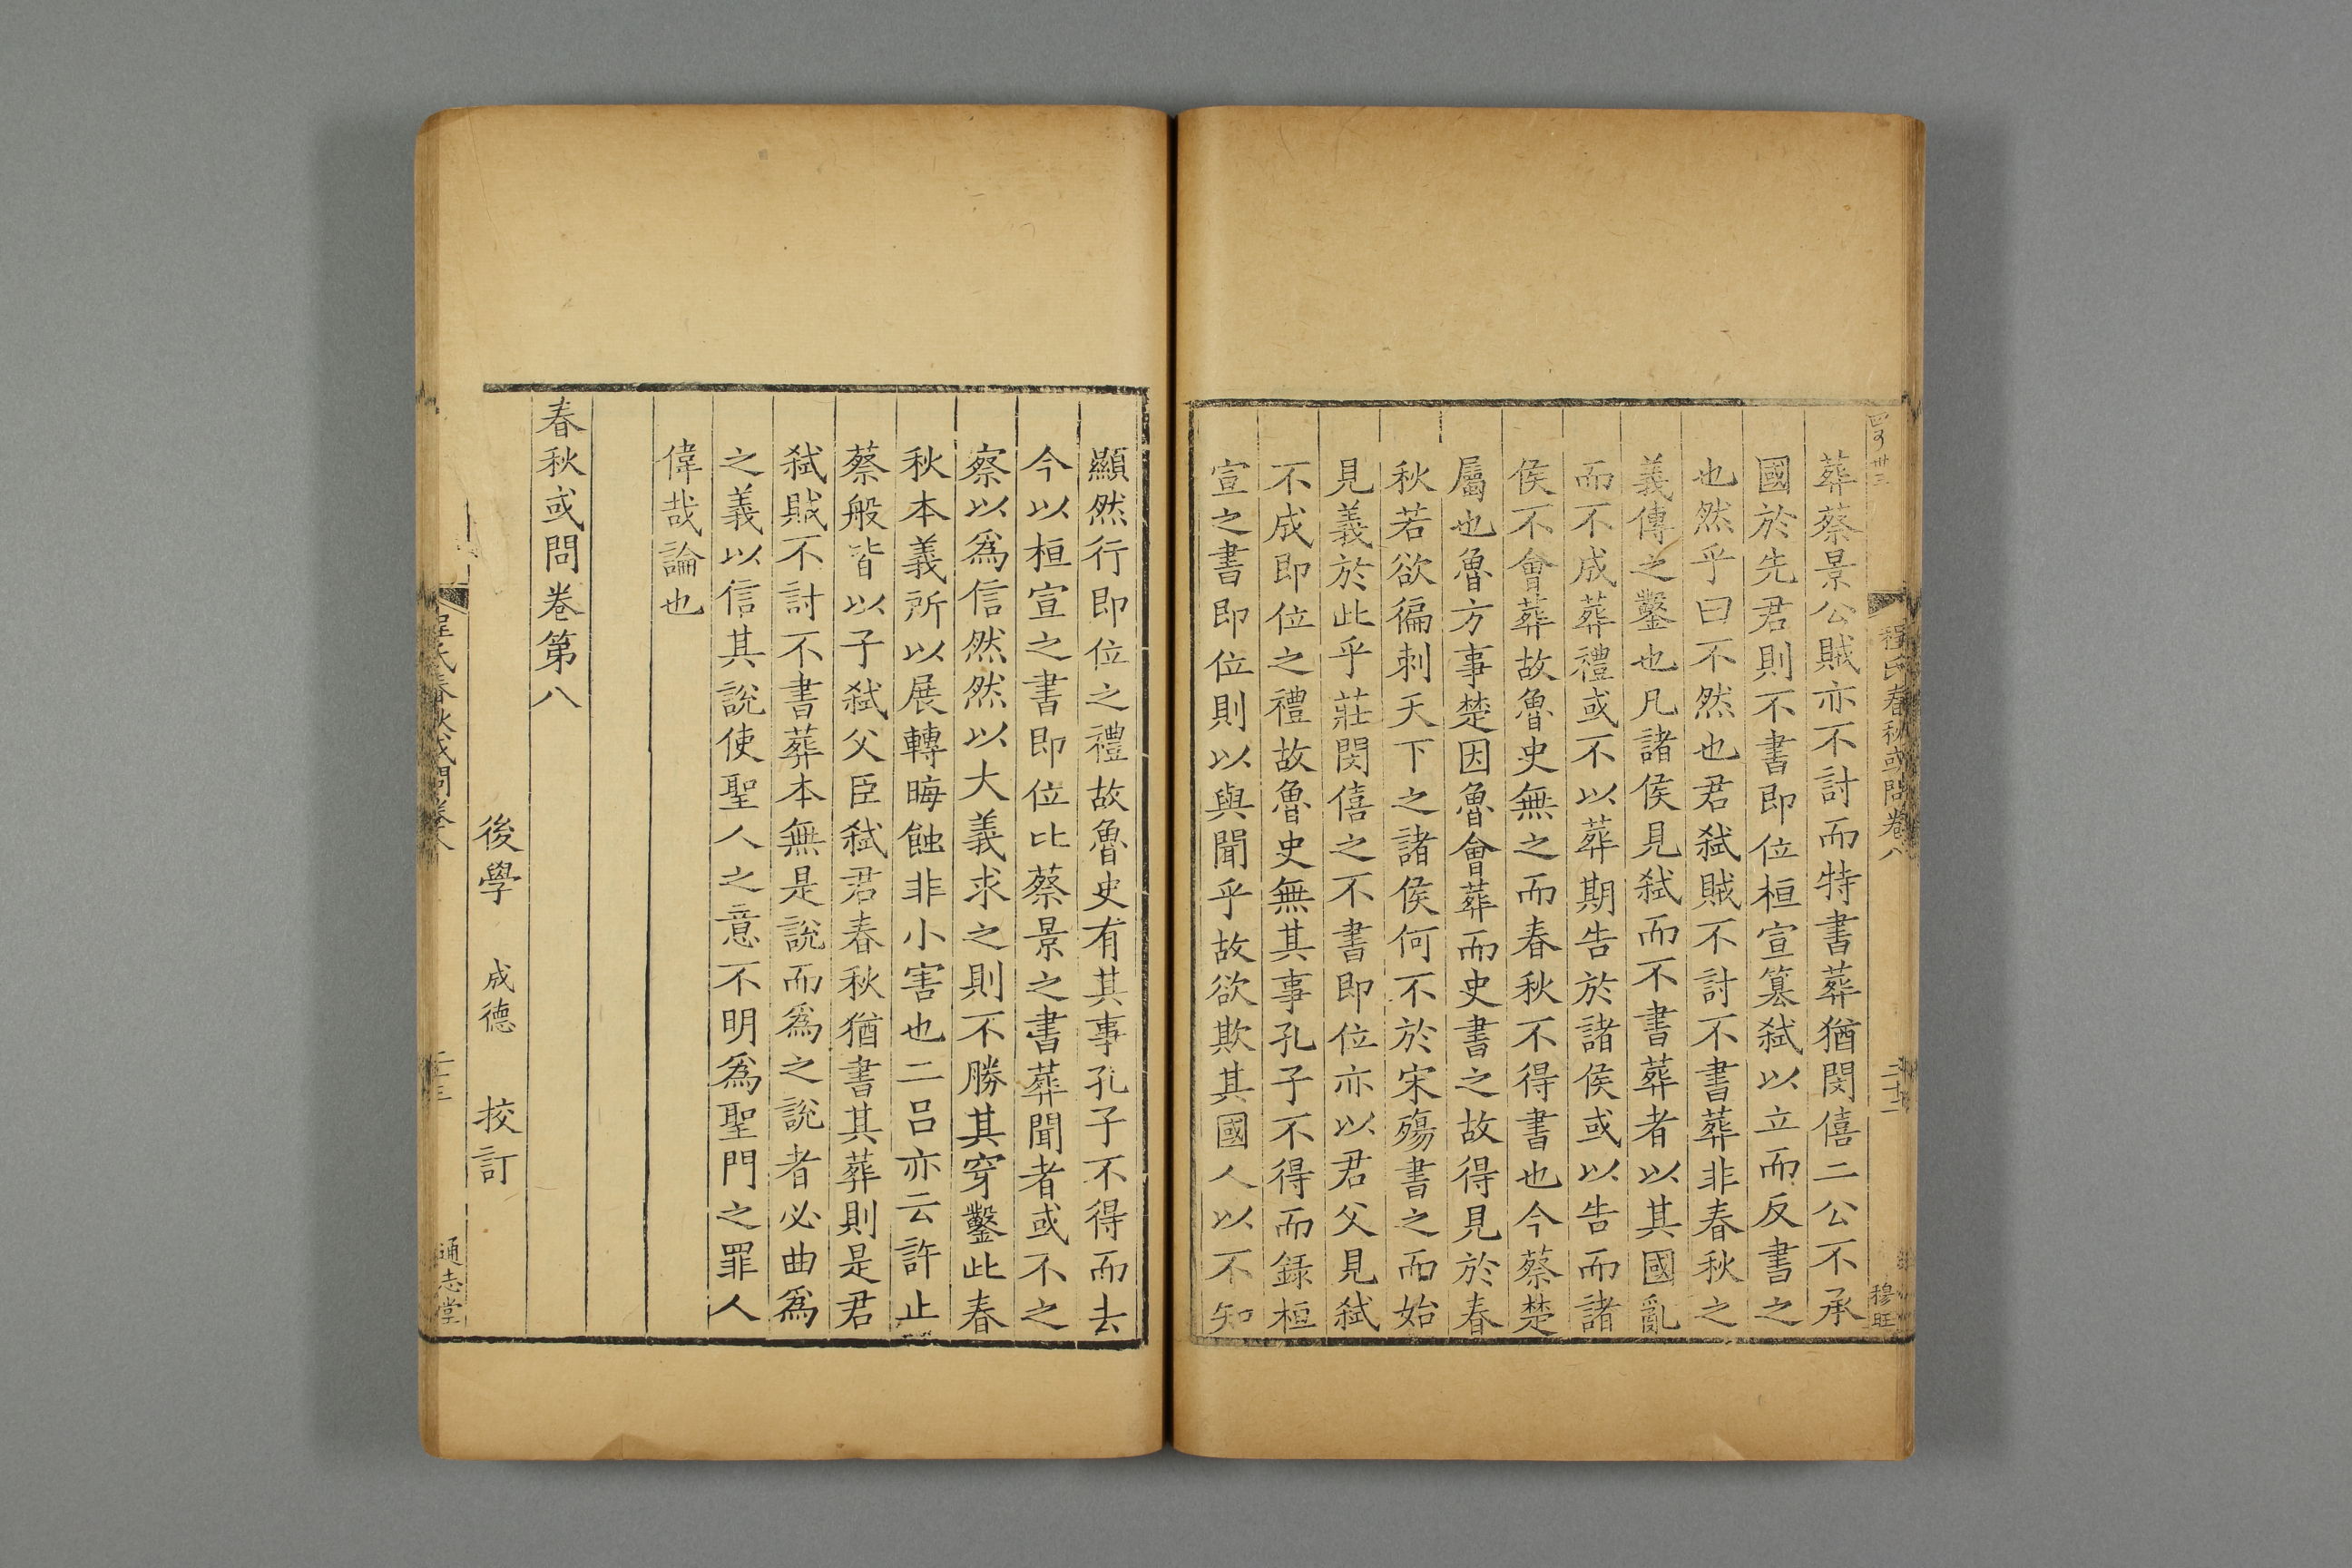 葬蔡景公賊亦不討而特書葬猶閔僖二公不承
國於先君則不書即位桓宣簒弑以立而反書之
也然乎曰不然也君弑賊不討不書葬非春秋之
義傳之鑿也凡諸侯見弑而不書葬者以其國亂
而不成葬禮或不以葬期告於諸侯或以告而諸
侯不會葬故魯史無之而春秋不得書也今蔡楚
屬也魯方事楚因魯會葬而史書之故得見於春
秋若欲徧刺天下之諸侯何不於宋殤書之而始
見義於此乎莊閔僖之不書即位亦以君父見弑
不成即位之禮故魯史無其事孔子不得而録桓
宣之書即位則以與聞乎故欲欺其國人以不知
程氏春秋或問卷八
穆旺
顯然行即位之禮故魯史有其事孔子不得而去
今以桓宣之書即位比蔡景之書葬聞者或不之
察以為信然然以大義求之則不勝其穿鑿此春
秋本義所以展轉晦蝕非小害也二吕亦云許止
蔡般皆以子弑父臣弑君春秋猶書其葬則是君
弑賊不討不書葬本無是說而為之說者必曲為
之義以信其說使聖人之意不明為聖門之罪人
偉哉論也
春秋或問卷第八
後學 成德 挍訂
程氏春秋或問卷八
通志堂